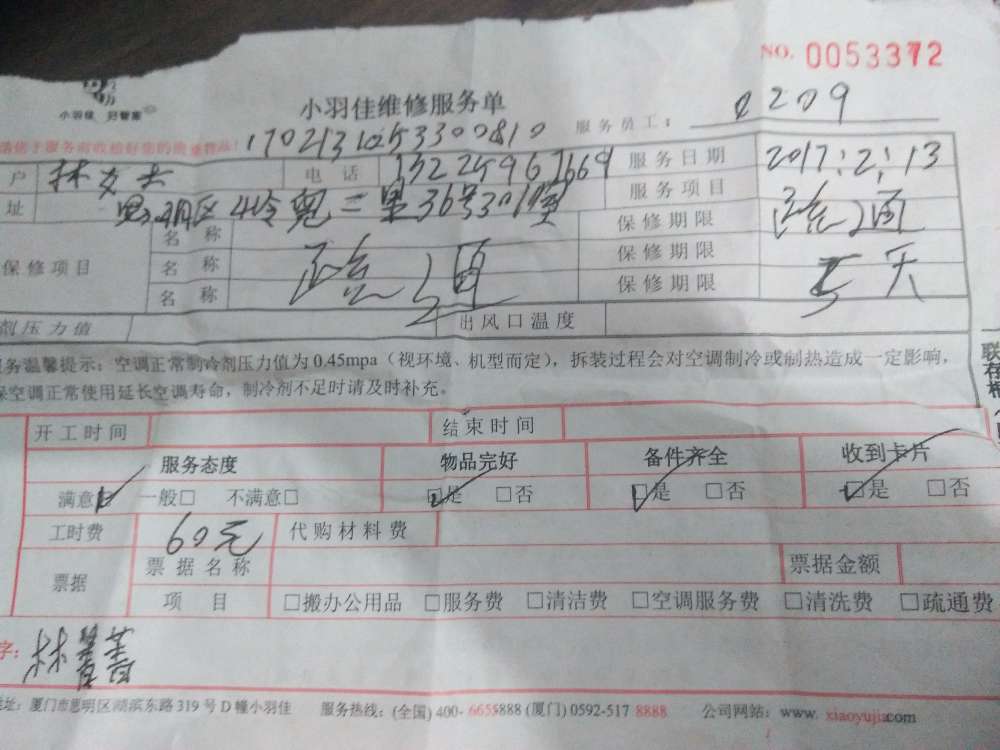 NO. 0053372
小羽佳 好管家
小羽佳维修服务单
服务员工: 0209
17021310533300810
户 林女士 电话 服务日期 2017.2.13
址 明区 二里36号301室 服务项目 疏通
名称 保修期限
保修项目 名称 疏通 保修期限
名称 保修期限 5天
剂压力值 出风口温度
务温馨提示: 空调正常制冷剂压力值为 0.45mpa (视环境、机型而定), 拆装过程会对空调制冷或制热造成一定影响,
保空调正常使用延长空调寿命, 制冷剂不足时请及时补充。
开工时间 结束时间
服务态度 物品完好 备件齐全 收到卡片
满意☑ 一般□ 不满意□ ☑是 □否 ☑是 □否 ☑是 □否
工时费 60元 代购材料费
票据 票据名称 票据金额
项目 □搬办公用品 □服务费 □清洁费 □空调服务费 □清洗费 □疏通费
字: 林
址: 厦门市思明区湖滨东路 319 号 D 幢小羽佳 服务热线: (全国) 400-6655888 (厦门) 0592-517 8888 公司网站: www.xiaoyujia.com